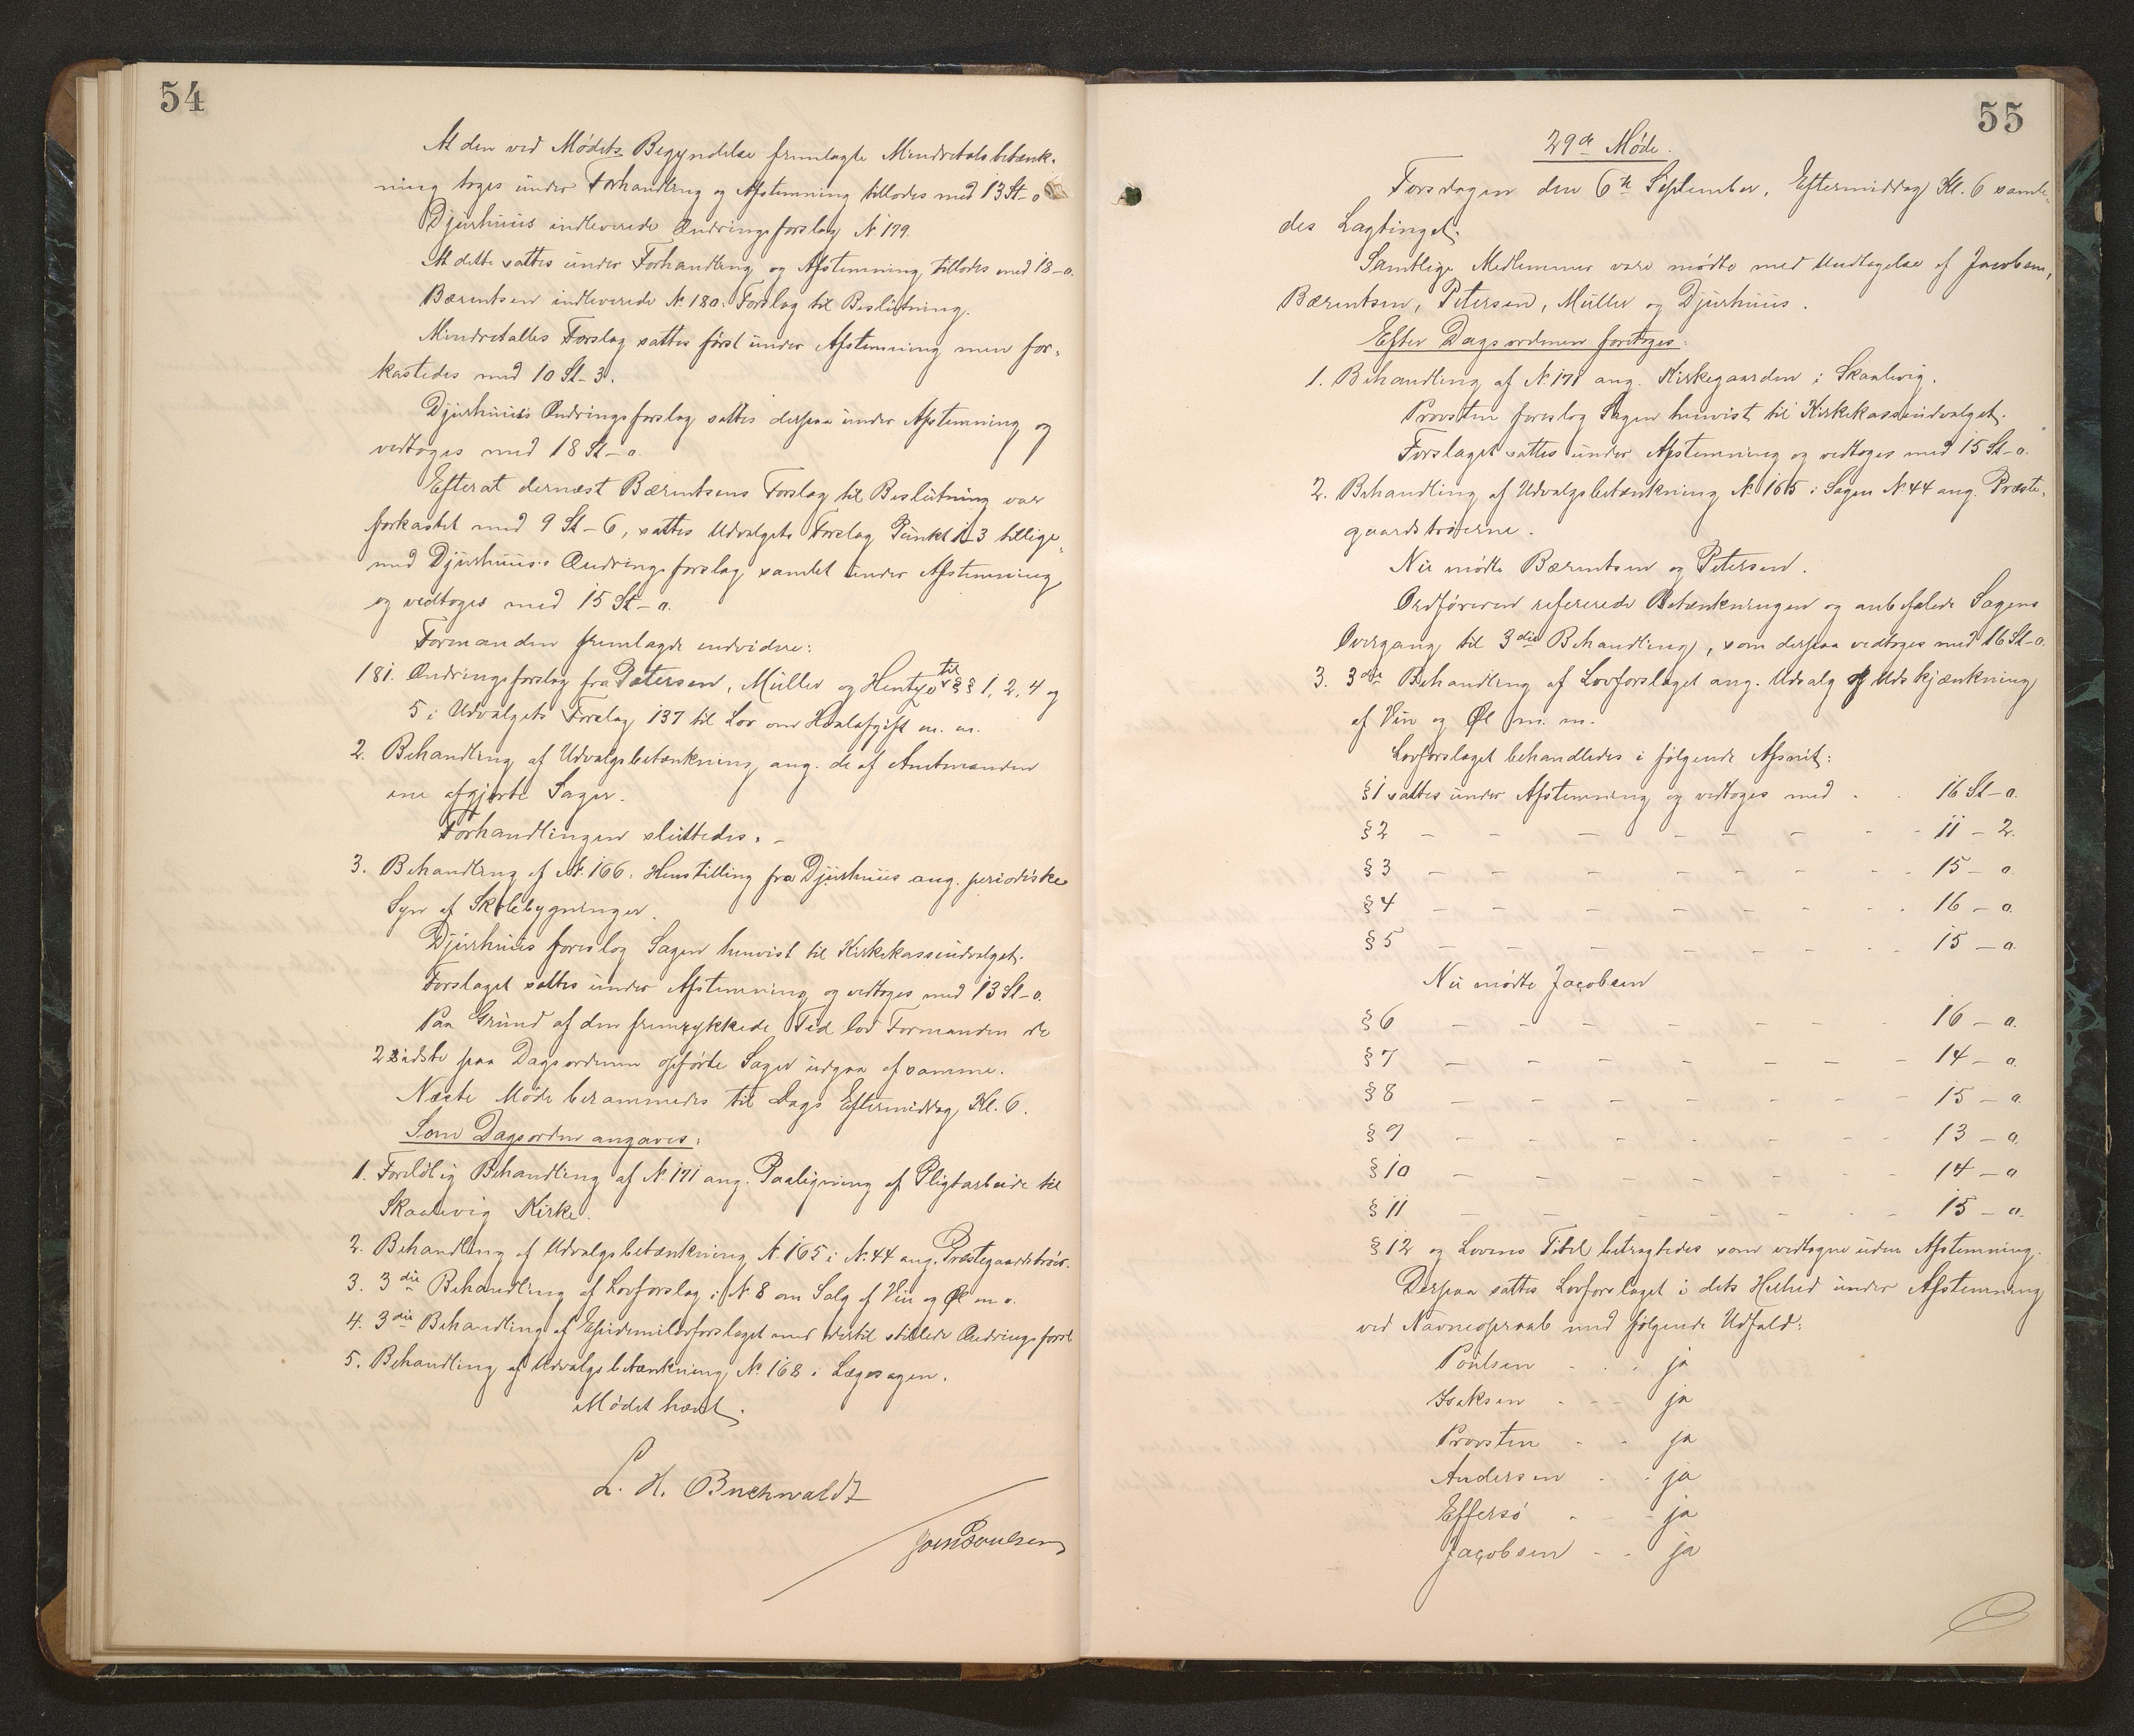 54
At den ved Mødets Begyndelse fremlagte Mindretalsbetænk-
ning toges under Forhandling og Afstemning tillodes med 13 St-0
Djurhuus indleverede Ændringsforslag No 179.
At dette sattes under Forhandling og Afstemning tillodes med 18-0.
Bærentsen indleverede No 180: Forslag til Beslutning.
Mindretallets Forslag sattes først under Afstemning men for-
kastedes med 10 St-3.
Djurhuus's Ændringsforslag sattes derpaa under Afstemning og
vedtoges med 18 St-0.
Efterat dernæst Bærentsens Forslag til Beslutning var
forkastet med 9 St-6, sattes Udvalgets Forslag Punkt 1-3 tillige-
med Djurhuus's Ændringsforslag samlet under Afstemning
og vedtoges med 15 St-0.
Formanden fremlagde endvidere:
181. Ændringsforslag fra Petersen, Müller og Hentze til §§ 1, 2, 4 og
5 i Udvalgets Forslag 137 til Lov om Hvalafgift m. m.
2. Behandling af Udvalgsbetænkning ang. de af Amtmanden
ene afgjorte Sager.
Forhandlingen sluttedes. -
3. Behandling af No. 166. Henstilling fra Djurhuus ang. periodiske
Syn af Skolebygninger.
Djurhuus foreslog Sagen henvist til Kirkekasseudvalget.
Forslaget sattes under Afstemning og vedtoges med 13 St-0.
Paa Grund af den fremrykkede Tid lod Formanden de
2 sidste paa Dagsordenen opførte Sager udgaa af samme.
Næste Møde berammedes til Dags Eftermiddag Kl. 6.
Som Dagsorden angaves:
1. Foreløbig Behandling af No 171 ang. Paaligning af Pligtarbeide til
Skaalevig Kirke.
2. Behandling af Udvalgsbetænkning No. 165 i No. 44 ang. Præstegaardstrøer.
3. 3die Behandling af Lovforslag i No 8 om Salg af Vin og Øl m. v.
4. 3die Behandling af Epidemilovforslaget med dertil stillede Ændringsforsl
5. Behandling af Udvalgsbetænkning No. 168 i Lægesagen.
Mødet hævet.
L. H. Buchwaldt
Poulsen
55
29de Møde.
Torsdagen den 6te September, Eftermiddag Kl. 6 samle-
des Lagtinget.
Samtlige Medlemmer vare mødte med Undtagelse af Jacobsen,
Bærentsen, Petersen, Müller og Djurhuus.
Efter Dagsordenen foretoges:
1. Behandling af No. 171 ang. Kirkegaarden i Skaalevig.
Provsten foreslog Sagen henvist til Kirkekasseudvalget.
Forslaget sattes under Afstemning og vedtoges med 15 St-0.
2. Behandling af Udvalgsbetænkning No. 165 i Sagen No 44 ang. Præste-
gaardstrøerne.
Nu mødte Bærentsen og Petersen.
Ordføreren refererede Betænkningen og anbefalede Sagens
Overgang til 3die Behandling, som derpaa vedtoges med 16 St-0.
3. 3die Behandling af Lovforslaget ang. Udsalg og Udskjænkning
af Vin og Øl m. m.
Lovforslaget behandledes i følgende Afsnit:
§ 1 sattes under Afstemning og vedtoges med - - 16 St-0.
§ 2 - - - - - - - - 11 - 2.
§ 3 - - - - - - - - 15 - 0.
§ 4 - - - - - - - - 16 - 0.
§ 5 - - - - - - - - 15 - 0.
Nu mødte Jacobsen
§ 6 - - - - - - - 16 - 0.
§ 7 - - - - - - - 14 - 0.
§ 8 - - - - - - - 15 - 0.
§ 9 - - - - - - - 13 - 0.
§ 10 - - - - - - - 14 - 0
§ 11 - - - - - - - 15 - 0.
§ 12 og Lovens Titel betragtedes som vedtagne uden Afstemning.
Derpaa sattes Lovforslaget i dets Helhed under Afstemning
ved Navneopraab med følgende Udfald:
Poulsen - - - ja
Isaksen - - - ja
Provsten - - ja
Andersen - - ja
Effersø - - - ja
Jacobsen - - ja